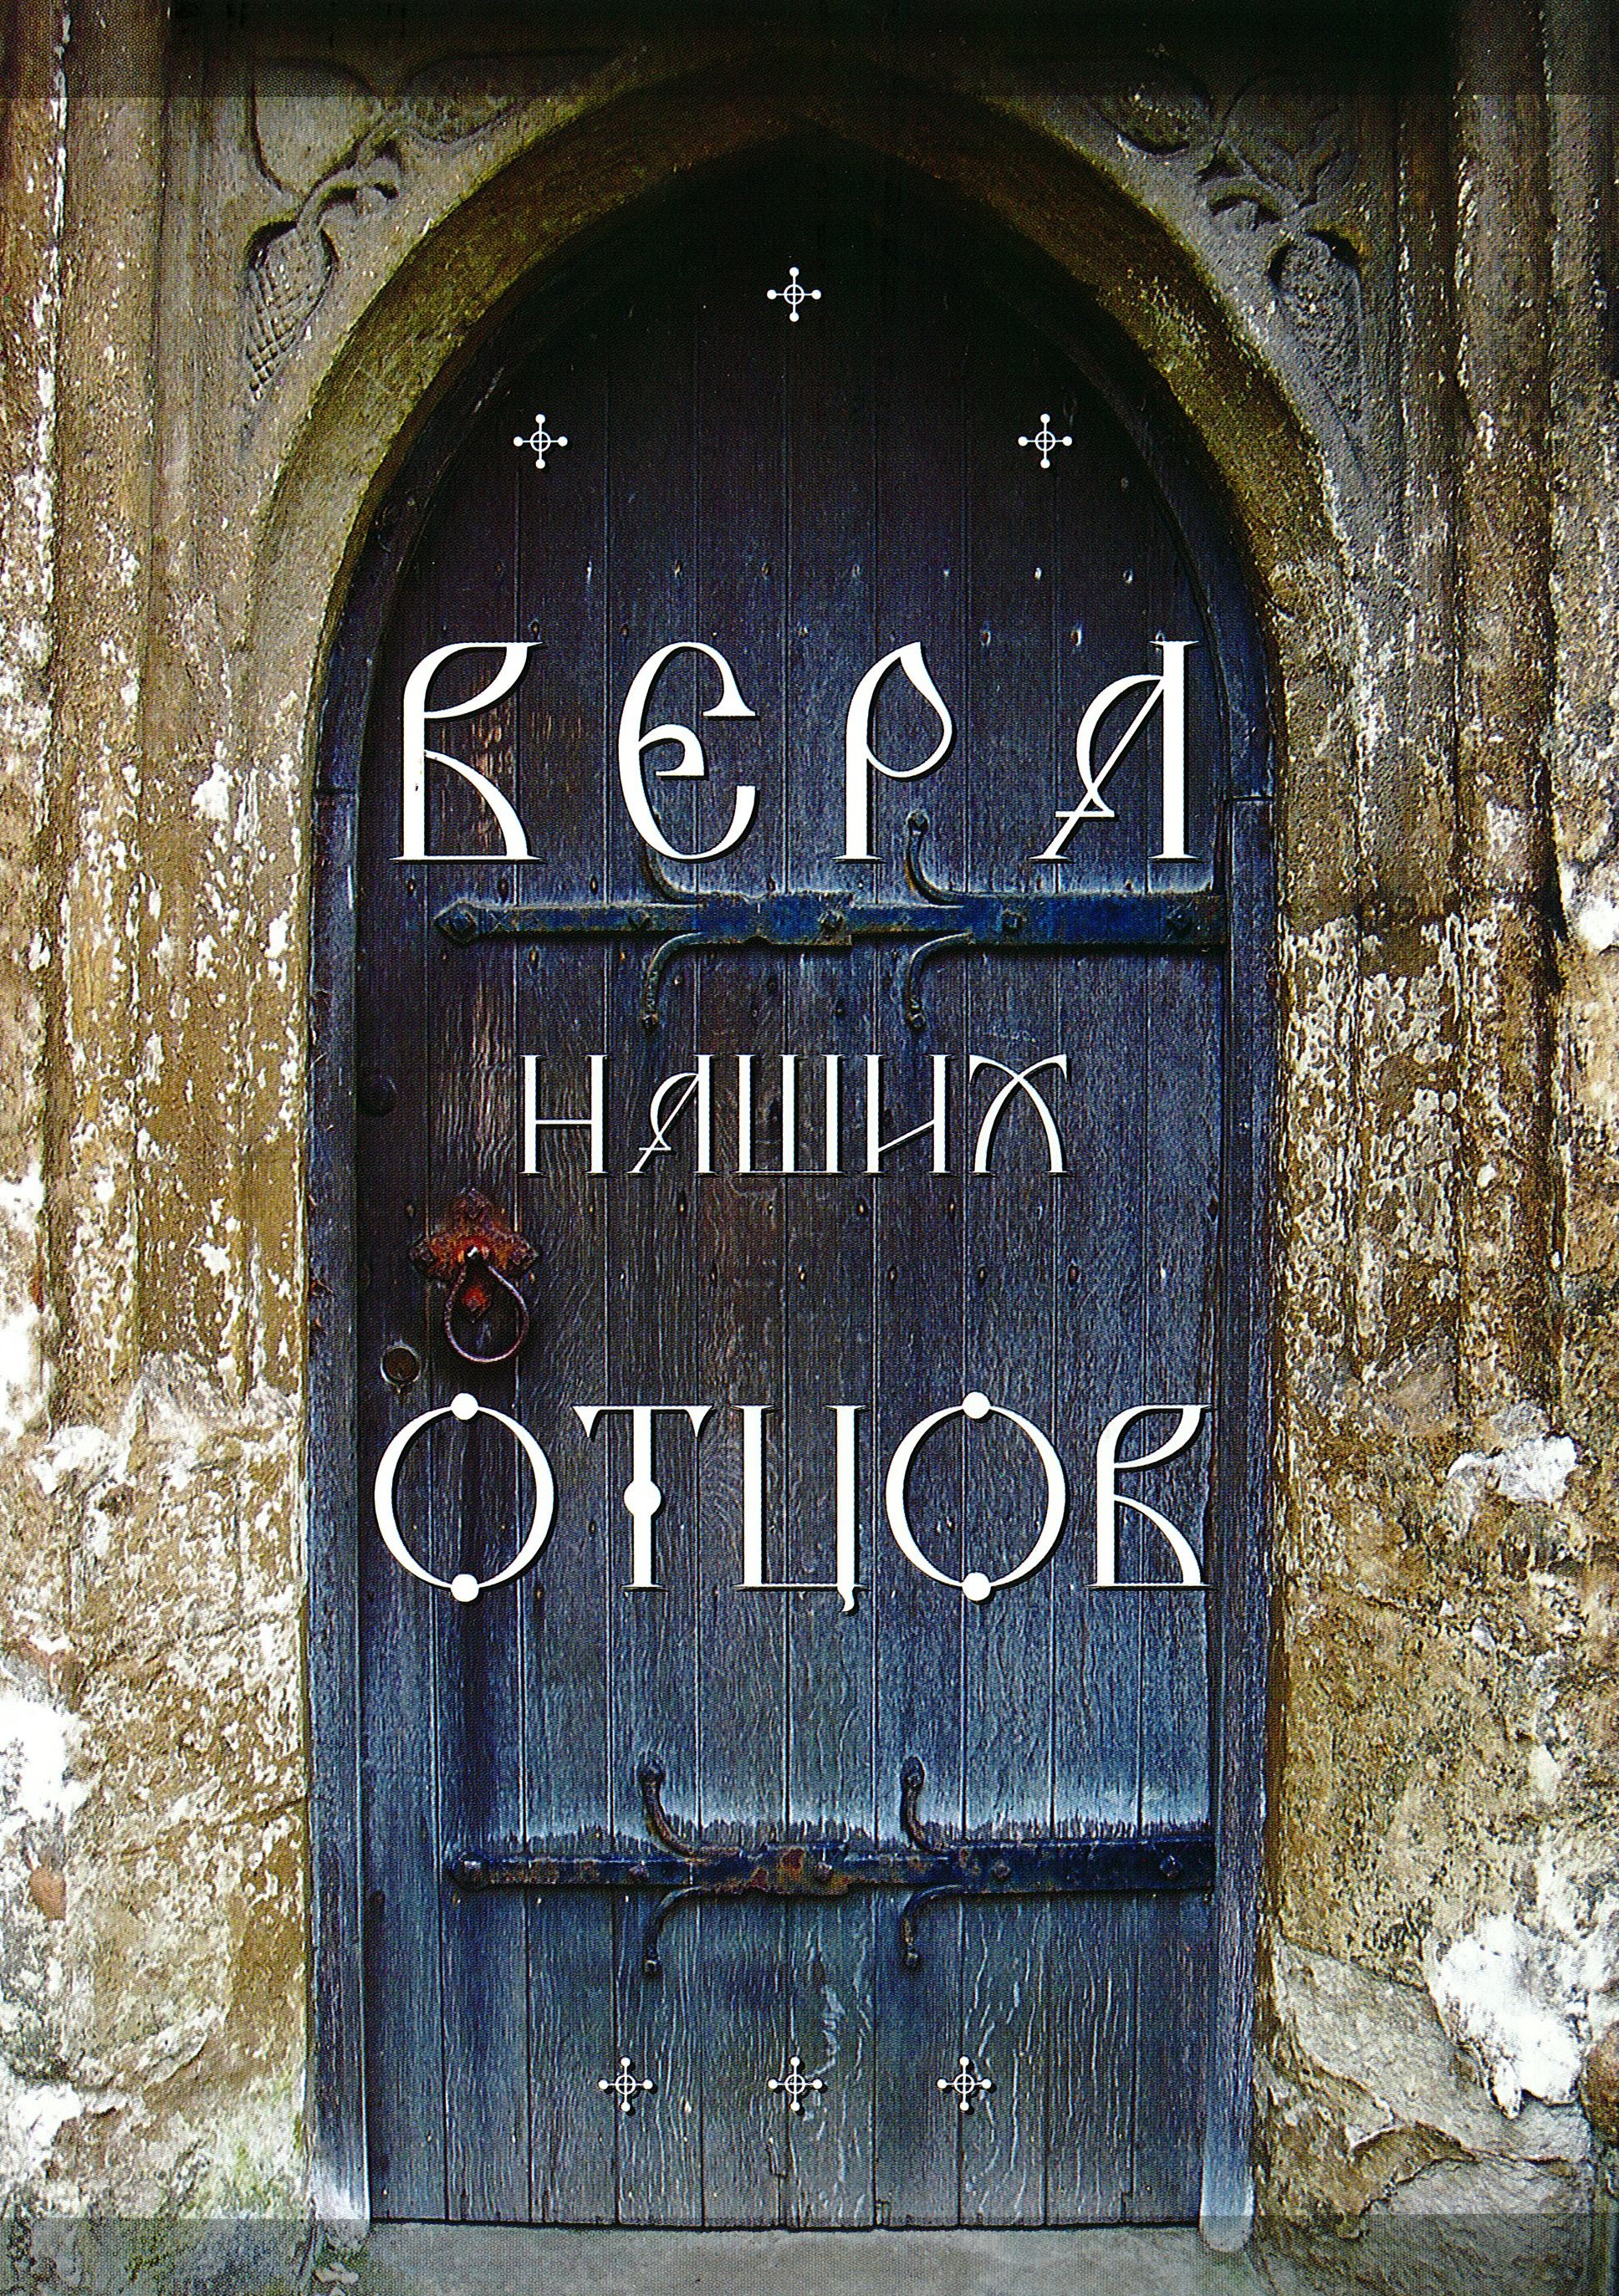 ВЕРА
НАШИХ
ОТЦОВ